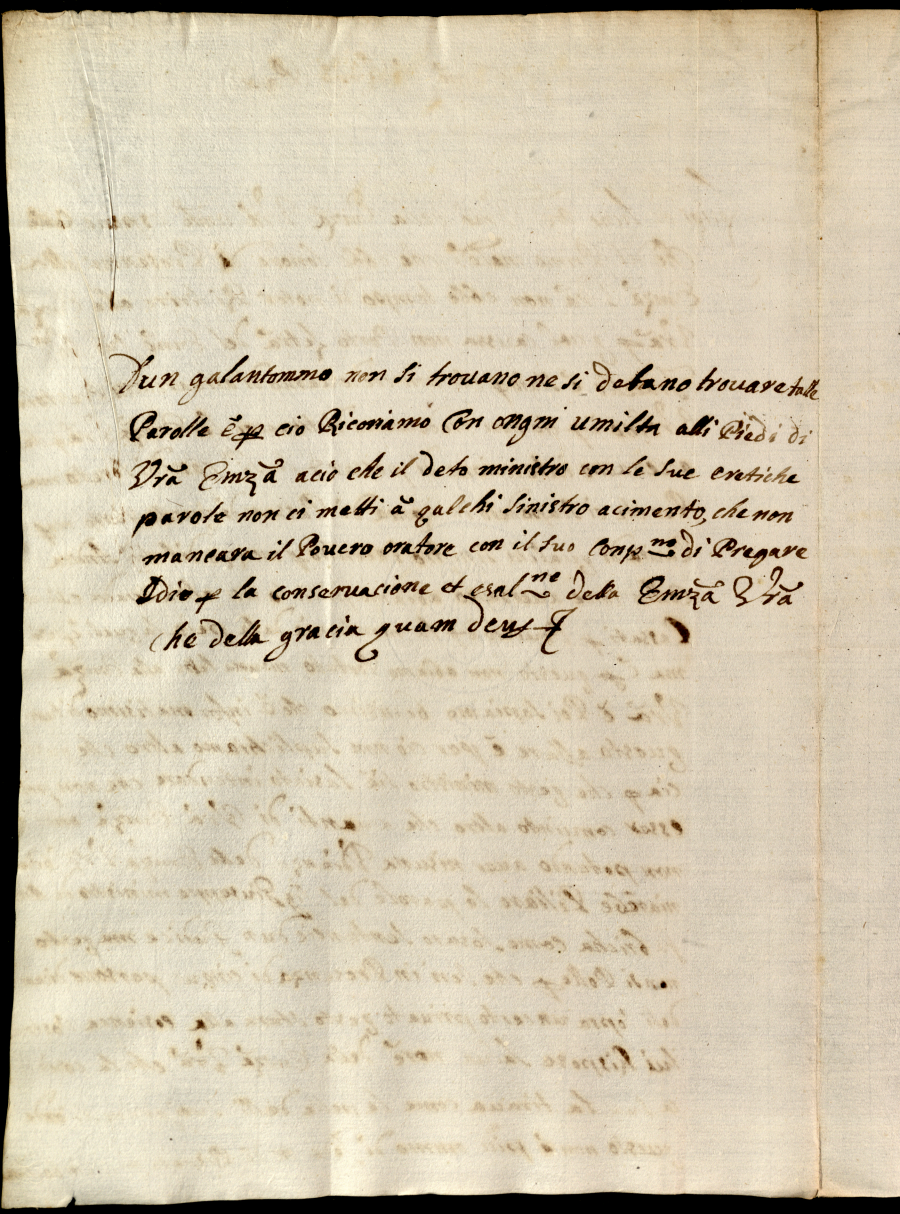 Dun galantommo non si trovano ne si debano trovare talle
Parolle è p cio Ricoriamo Con ongni umilta alli Piedi di
Vrã Emzã acio che il deto ministro con le sue eretiche
parole non ci metti ã qalchi sinistro acimento, che non
mancara il Povero oratore con il suo Conp.no di Pregare
Idio p la conservacione et esal.ne della Emzã Vrã
che della gracia quam deus